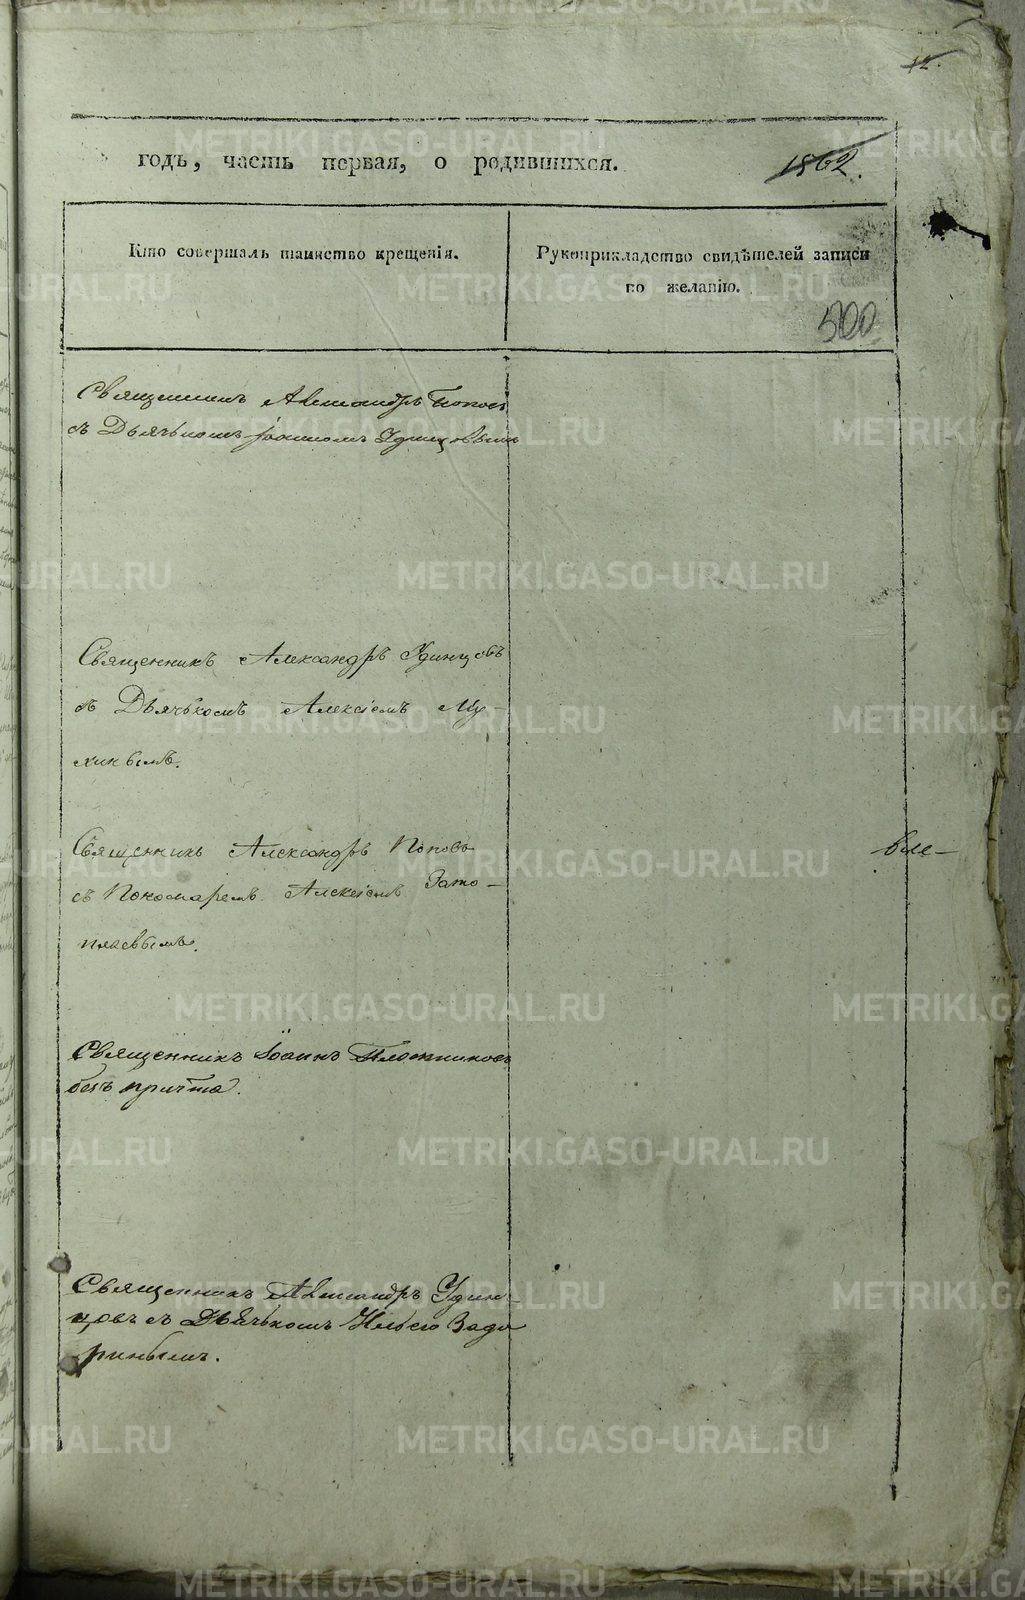 12.
годъ, часть первая, о родившихся.
1862.
Кто совершалъ таинство крещенія.
Рукоприкладство свидѣтелей записи
по желанію.
500
Священникъ Александръ Попов
съ Дьячькомъ Іоанномъ Удинцовымъ
Священникъ Александръ Удинцовъ
съ Дьячькомъ Алексіемъ Му-
хинымъ.
Священникъ Александръ Поповъ
съ Пономаремъ Алексіемъ Зато-
пляевымъ.
Священникъ Іоаннъ Плотниковъ
безъ причта.
Священникъ Александръ Удин-
цовъ съ Дьячькомъ Ильею Задо
ринымъ.
METRIKI.GASO-URAL.RU